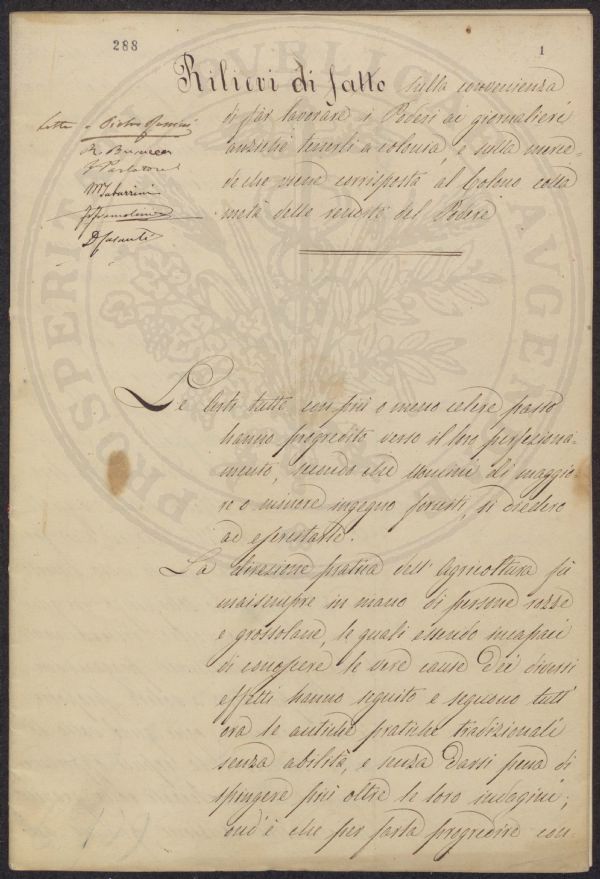 288
1
Rilievi di fatto sulla convenienza
di far lavorare i Poderi ai giornalieri
anziché tenerli a colonia, e sulla merce-
de che viene corrisposta al Colono colla
metà delle rendite del Podere
Letta a Pietro
D Casanti
PROSPERITATI PUBLICAE AUGENDAE
Le Arti tutte, con più o meno celere passo
hanno progredito verso il loro perfeziona-
mento, secondo che uomini di maggio-
re o minore ingegno forniti, si diedero
ad esercitarle.
La direzione pratica dell' Agricoltura fu
maisempre in mano di persone rozze
e grossolane, le quali essendo incapaci
di conoscere le vere cause dei diversi
effetti hanno seguito e seguono tutt'
ora le antiche pratiche tradizionali
senza abilità, e senza darsi pena di
spingere più oltre le loro indagini;
ond'è che per farla progredire con-